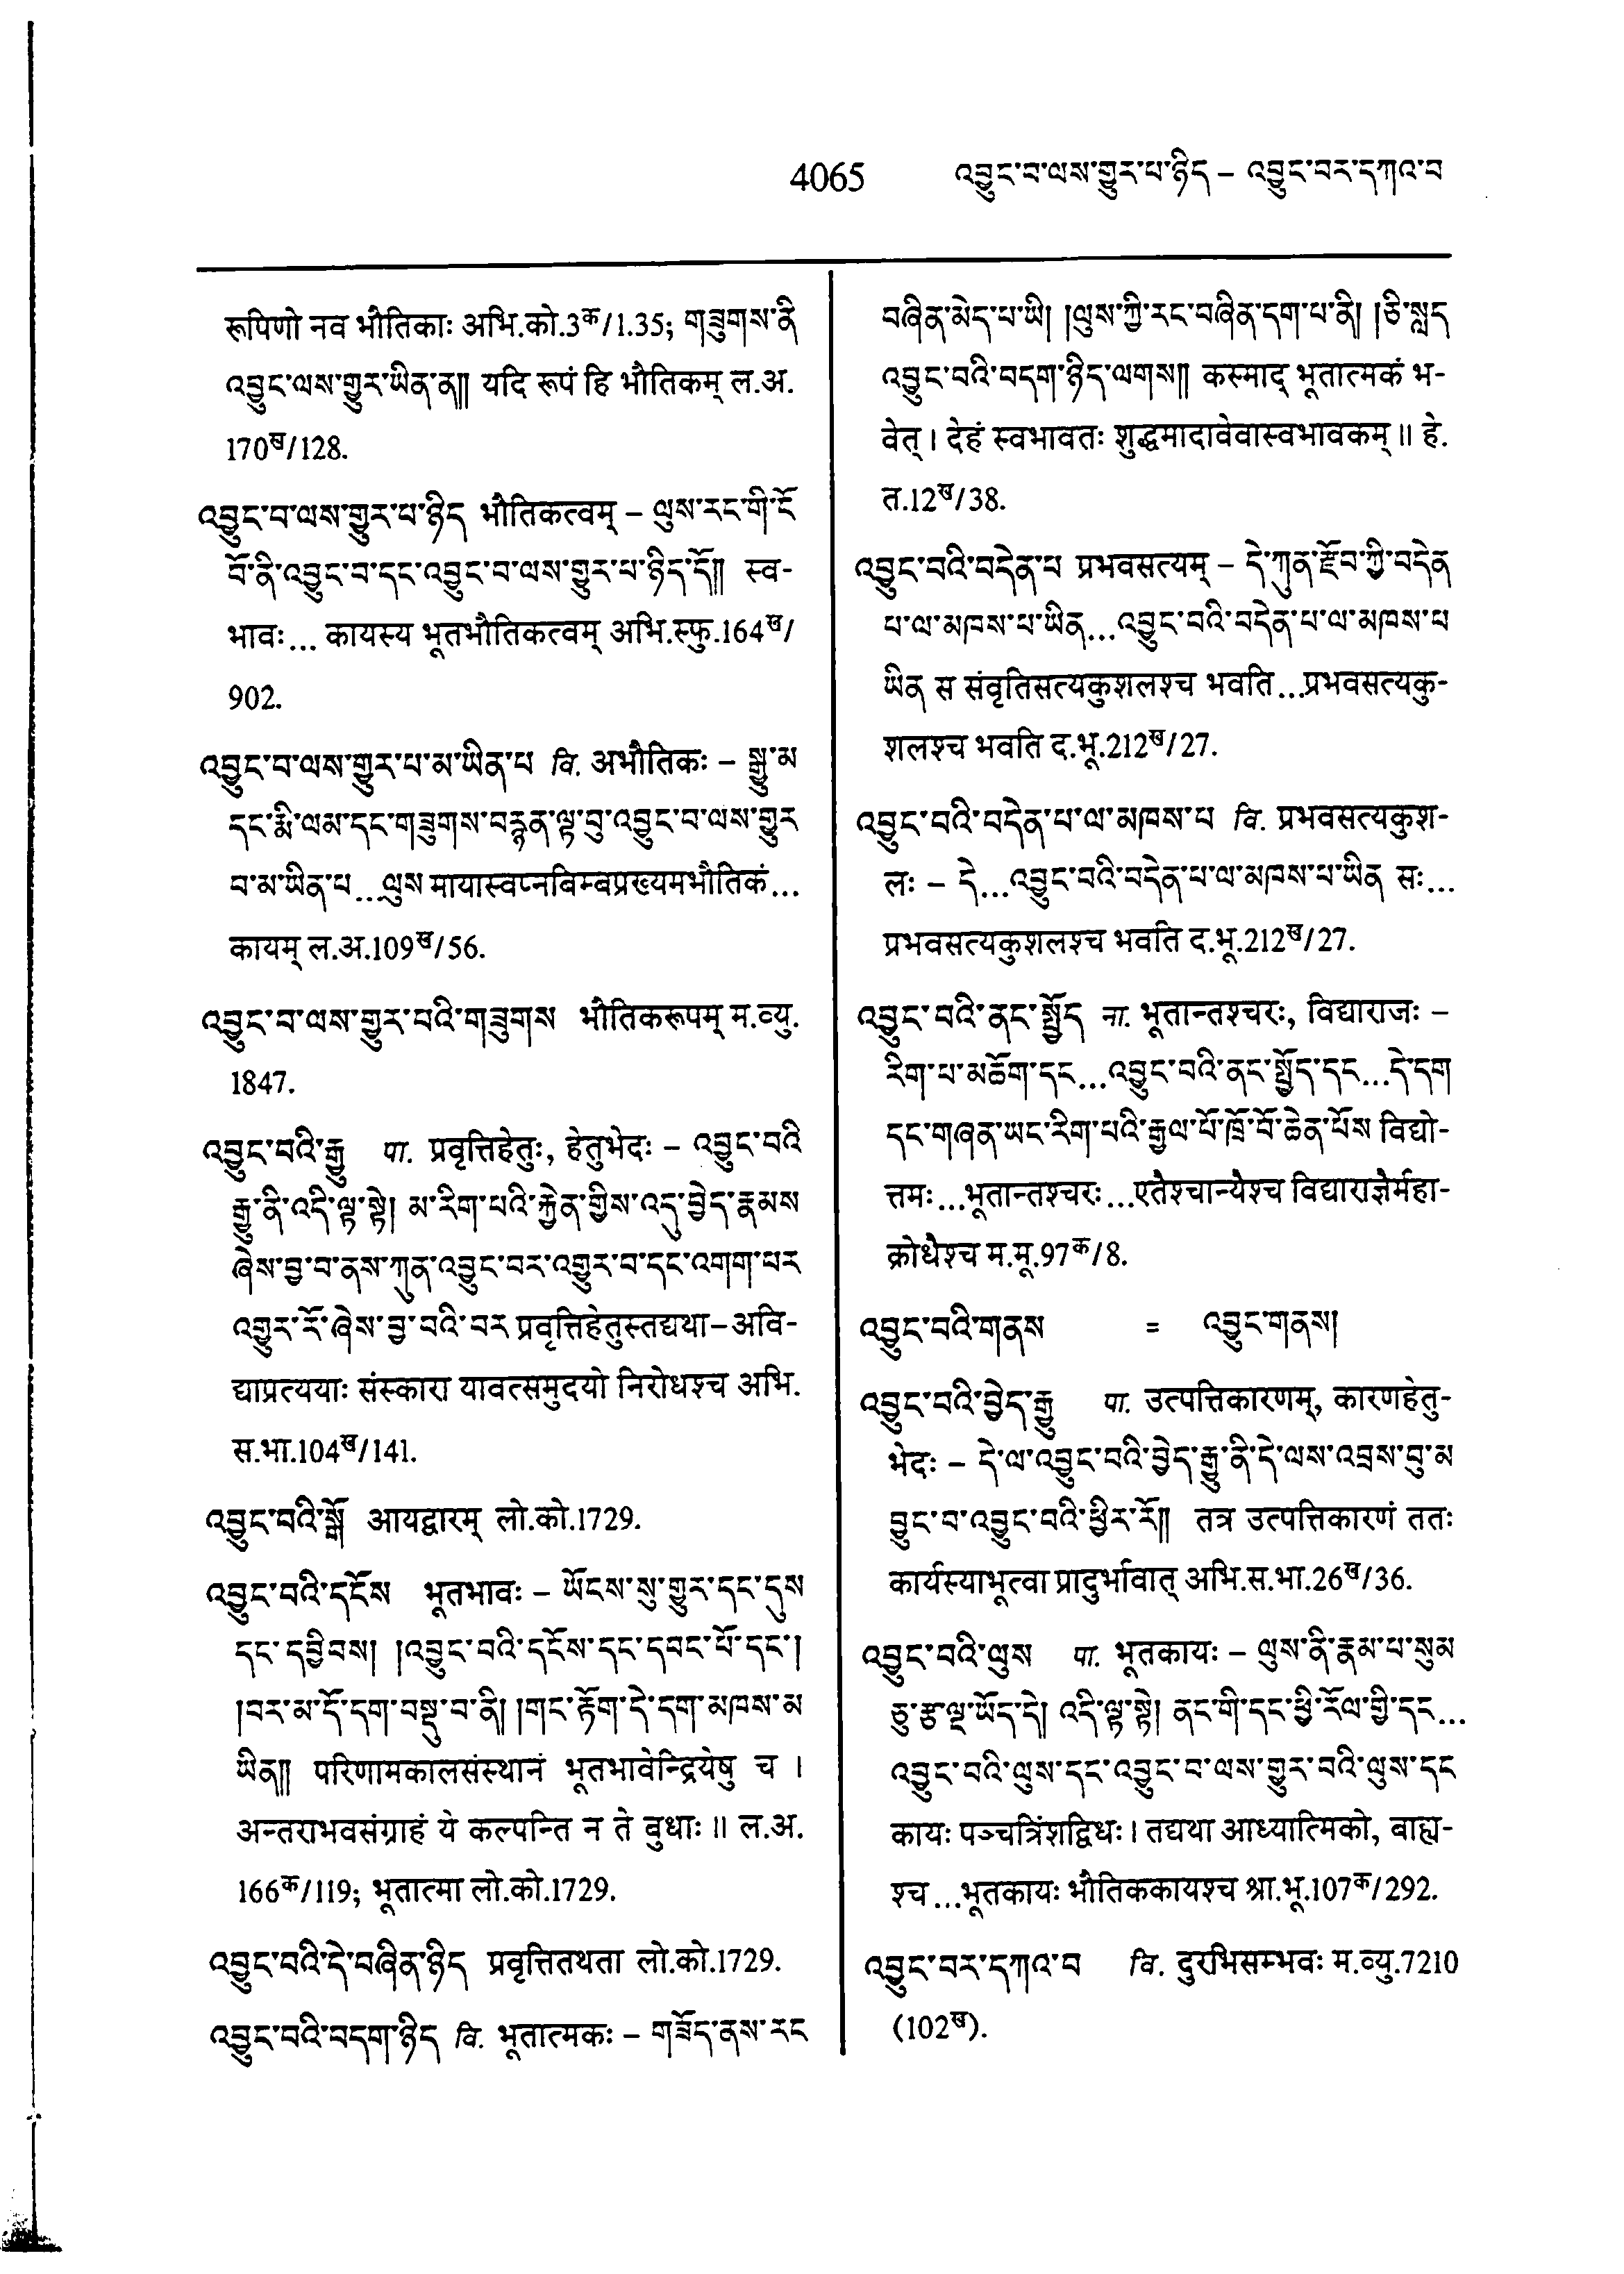 4065 འབྱུང་བ་ལས་གྱུར་པ་ཉིད – འབྱུང་བར་དཀའ་བ
रूपिणो नव भौतिकाः अभि.को.3क/1.35; གཟུགས་ནི
འབྱུང་ལས་གྱུར་ཡིན་ན༎ यदि रूपं हि भौतिकम् ल.अ.
170ख/128.
འབྱུང་བ་ལས་གྱུར་པ་ཉིད भौतिकत्वम् – ལུས་རང་གི་ངོ
བོ་ནི་འབྱུང་བ་དང་འབྱུང་བ་ལས་གྱུར་པ་ཉིད་དོ༎ स्व-
भावः... कायस्य भूतभौतिकत्वम् अभि.स्फु.164ख/
902.
འབྱུང་བ་ལས་གྱུར་པ་མ་ཡིན་པ वि. अभौतिकः – སྒྱུ་མ
དང་རྨི་ལམ་དང་གཟུགས་བརྙན་ལྟ་བུ་འབྱུང་བ་ལས་གྱུར
བ་མ་ཡིན་པ...ལུས मायास्वप्नबिम्बप्रख्यमभौतिकं...
कायम् ल.अ.109ख/56.
འབྱུང་བ་ལས་གྱུར་བའི་གཟུགས भौतिकरूपम् म.व्यु.
1847.
འབྱུང་བའི་རྒྱུ पा. प्रवृत्तिहेतुः, हेतुभेदः – འབྱུང་བའི
རྒྱུ་ནི་འདི་ལྟ་སྟེ། མ་རིག་པའི་རྐྱེན་གྱིས་འདུ་བྱེད་རྣམས
ཞེས་བྱ་བ་ནས་ཀུན་འབྱུང་བར་འགྱུར་བ་དང་འགག་པར
འགྱུར་རོ་ཞེས་བྱ་བའི་བར प्रवृत्तिहेतुस्तद्यथा–अवि-
द्याप्रत्ययाः संस्कारा यावत्समुदयो निरोधश्च अभि.
स.भा.104ख/141.
འབྱུང་བའི་སྒོ आयद्वारम् लो.को.1729.
འབྱུང་བའི་དངོས भूतभावः – ཡོངས་སུ་གྱུར་དང་དུས
དང་དབྱིབས། །འབྱུང་བའི་དངོས་དང་དབང་པོ་དང་།
།བར་མ་དོ་དག་བསྡུ་བ་ནི། །གང་རྟོག་དེ་དག་མཁས་མ
ཡིན༎ परिणामकालसंस्थानं भूतभावेन्द्रियेषु च ।
अन्तराभवसंग्राहं ये कल्पन्ति न ते बुधाः ॥ ल.अ.
166क/119; भूतात्मा लो.को.1729.
འབྱུང་བའི་དེ་བཞིན་ཉིད प्रवृत्तितथता लो.को.1729.
འབྱུང་བའི་བདག་ཉིད वि. भूतात्मकः – གཟོད་ནས་རང
བཞིན་མེད་པ་ཡི། །ལུས་ཀྱི་རང་བཞིན་དག་པ་ནི། །ཅི་སླད
འབྱུང་བའི་བདག་ཉིད་ལགས༎ कस्माद् भूतात्मकं भ-
वेत् । देहं स्वभावतः शुद्धमादावेवास्वभावकम् ॥ हे.
त.12ख/38.
འབྱུང་བའི་བདེན་པ प्रभवसत्यम् – དེ་ཀུན་རྫོབ་ཀྱི་བདེན
པ་ལ་མཁས་པ་ཡིན...འབྱུང་བའི་བདེན་པ་ལ་མཁས་པ
ཡིན स संवृतिसत्यकुशलश्च भवति...प्रभवसत्यकु-
शलश्च भवति द.भू.212ख/27.
འབྱུང་བའི་བདེན་པ་ལ་མཁས་པ वि. प्रभवसत्यकुश-
लः – དེ...འབྱུང་བའི་བདེན་པ་ལ་མཁས་པ་ཡིན सः...
प्रभवसत्यकुशलश्च भवति द.भू.212ख/27.
འབྱུང་བའི་ནང་སྤྱོད ना. भूतान्तश्चरः, विद्याराजः –
རིག་པ་མཆོག་དང...འབྱུང་བའི་ནང་སྤྱོད་དང...དེ་དག
དང་གཞན་ཡང་རིག་པའི་རྒྱལ་པོ་ཁྲོ་བོ་ཆེན་པོས विद्यो-
त्तमः...भूतान्तश्चरः...एतैश्चान्यैश्च विद्याराज्ञैर्महा-
क्रोधैश्च म.मू.97क/8.
འབྱུང་བའི་གནས = འབྱུང་གནས།
འབྱུང་བའི་བྱེད་རྒྱུ पा. उत्पत्तिकारणम्, कारणहेतु-
भेदः – དེ་ལ་འབྱུང་བའི་བྱེད་རྒྱུ་ནི་དེ་ལས་འབྲས་བུ་མ
བྱུང་བ་འབྱུང་བའི་ཕྱིར་རོ༎ तत्र उत्पत्तिकारणं ततः
कार्यस्याभूत्वा प्रादुर्भावात् अभि.स.भा.26ख/36.
འབྱུང་བའི་ལུས पा. भूतकायः – ལུས་ནི་རྣམ་པ་སུམ
ཅུ་རྩ་ལྔ་ཡོད་དེ། འདི་ལྟ་སྟེ། ནང་གི་དང་ཕྱི་རོལ་གྱི་དང...
འབྱུང་བའི་ལུས་དང་འབྱུང་བ་ལས་གྱུར་བའི་ལུས་དང
कायः पञ्चत्रिंशद्विधः। तद्यथा आध्यात्मिको, बाह्य-
श्च...भूतकायः भौतिककायश्च श्रा.भू.107क/292.
འབྱུང་བར་དཀའ་བ वि. दुरभिसम्भवः म.व्यु.7210
(102ख).